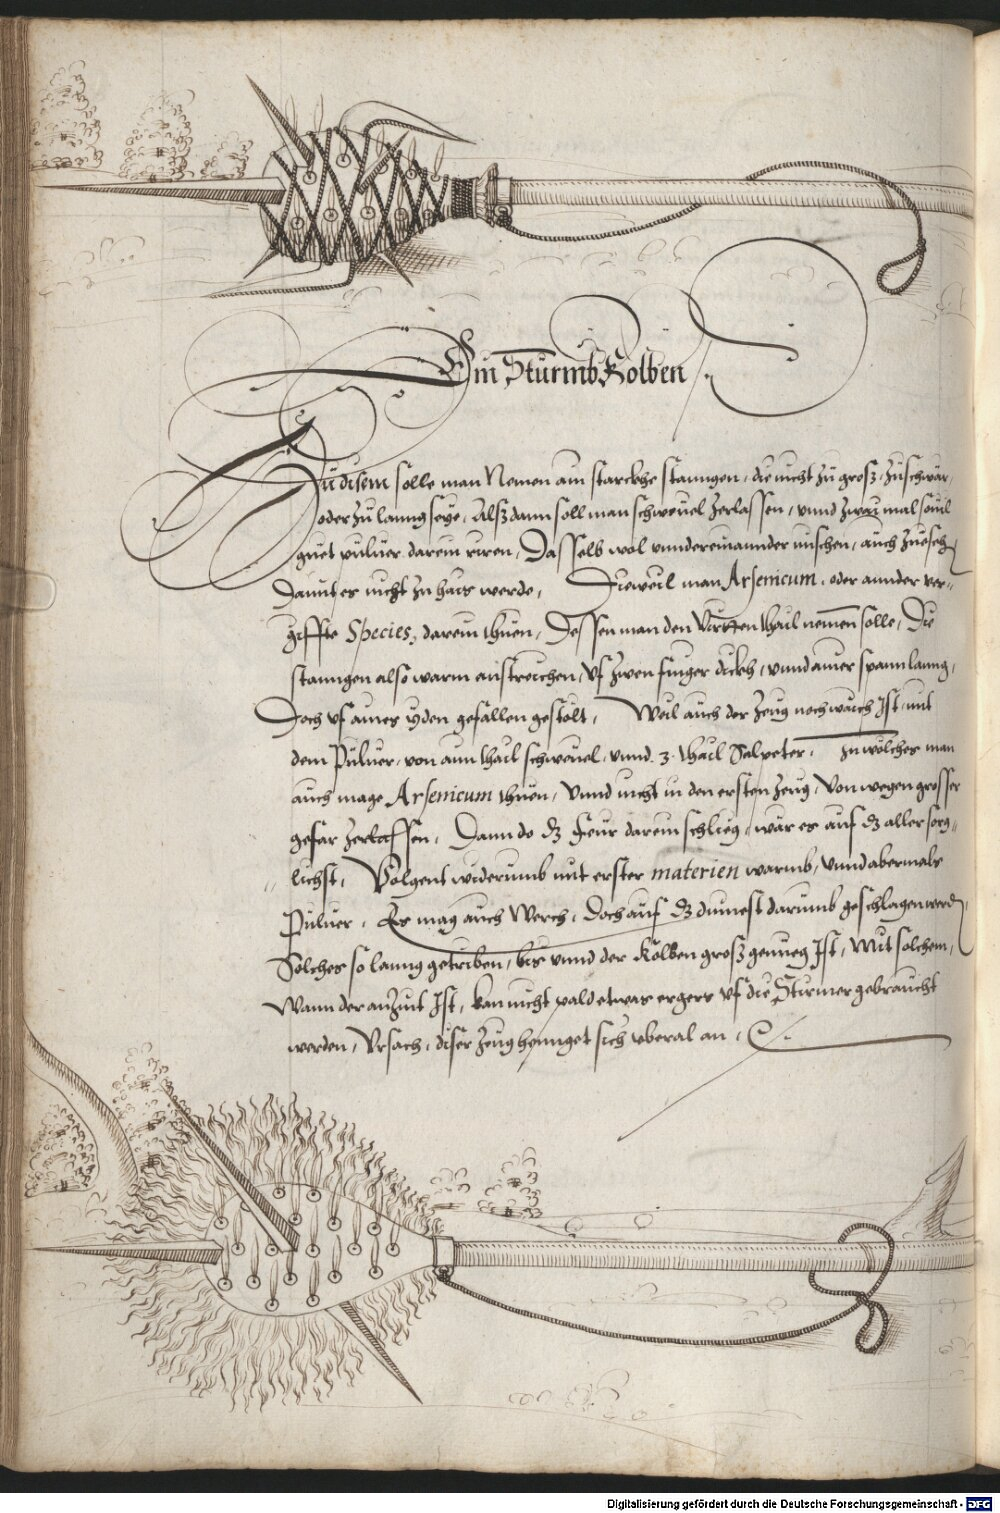 Ein Sturmb Kolben
Zu disem solle man Nemen ain starckhe stanngen, die nicht zu groß, zuschwär,
oder zu lanng seye, Alßdann soll man schweuel zerlassen, vnnd zway mal souil
guet puluer darein ruren, Dasselb wol vnndereinannder mischen, auch zuesehen
Damit es nicht zu hais werde, Dieweil man Arsenicum, oder annder ver-
gifften Species, darein thuen, Dessen man den Virtten thail nemen solle, Die
stanngen also warm anstreichen, vf zwen finger dickh, vnnd ainer spann lanng,
Doch vf aines yden gefallen gestölt, Weil auch der zeug noch waich Ist, mit
dem Puluer, von ain thail schweuel, vnnd 3 thail Salpeter, Inn wölches man
auch mage Arsenicum thuen, Vnnd nicht in den ersten zeug, Von wegen grosser
gefar zerlassen, Dann do dz Feur darein schlieg, wär es auf dz aller sorg-
lichst, Volgent widerumb mit erster materien warmb, vnnd abermals
Puluer. Es mag auch Werch, Doch auf dz dinnest darumb geschlagen werden
Solches so lanng getriben, bis vnnd der Kolben groß genueg Ist, Mit solchem,
Wann der anzint Ist, kan nicht pald etwas ergers vf die Sturmer gebraucht
werden, Vrsach, diser zeug hennget sich vberal an,
Digitalisierung gefördert durch die Deutsche Forschungsgemeinschaft - DFG